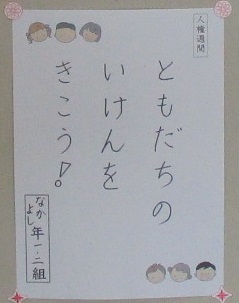 人権週間
ともだちの
いけんを
きこう!
なかよし年一・二組